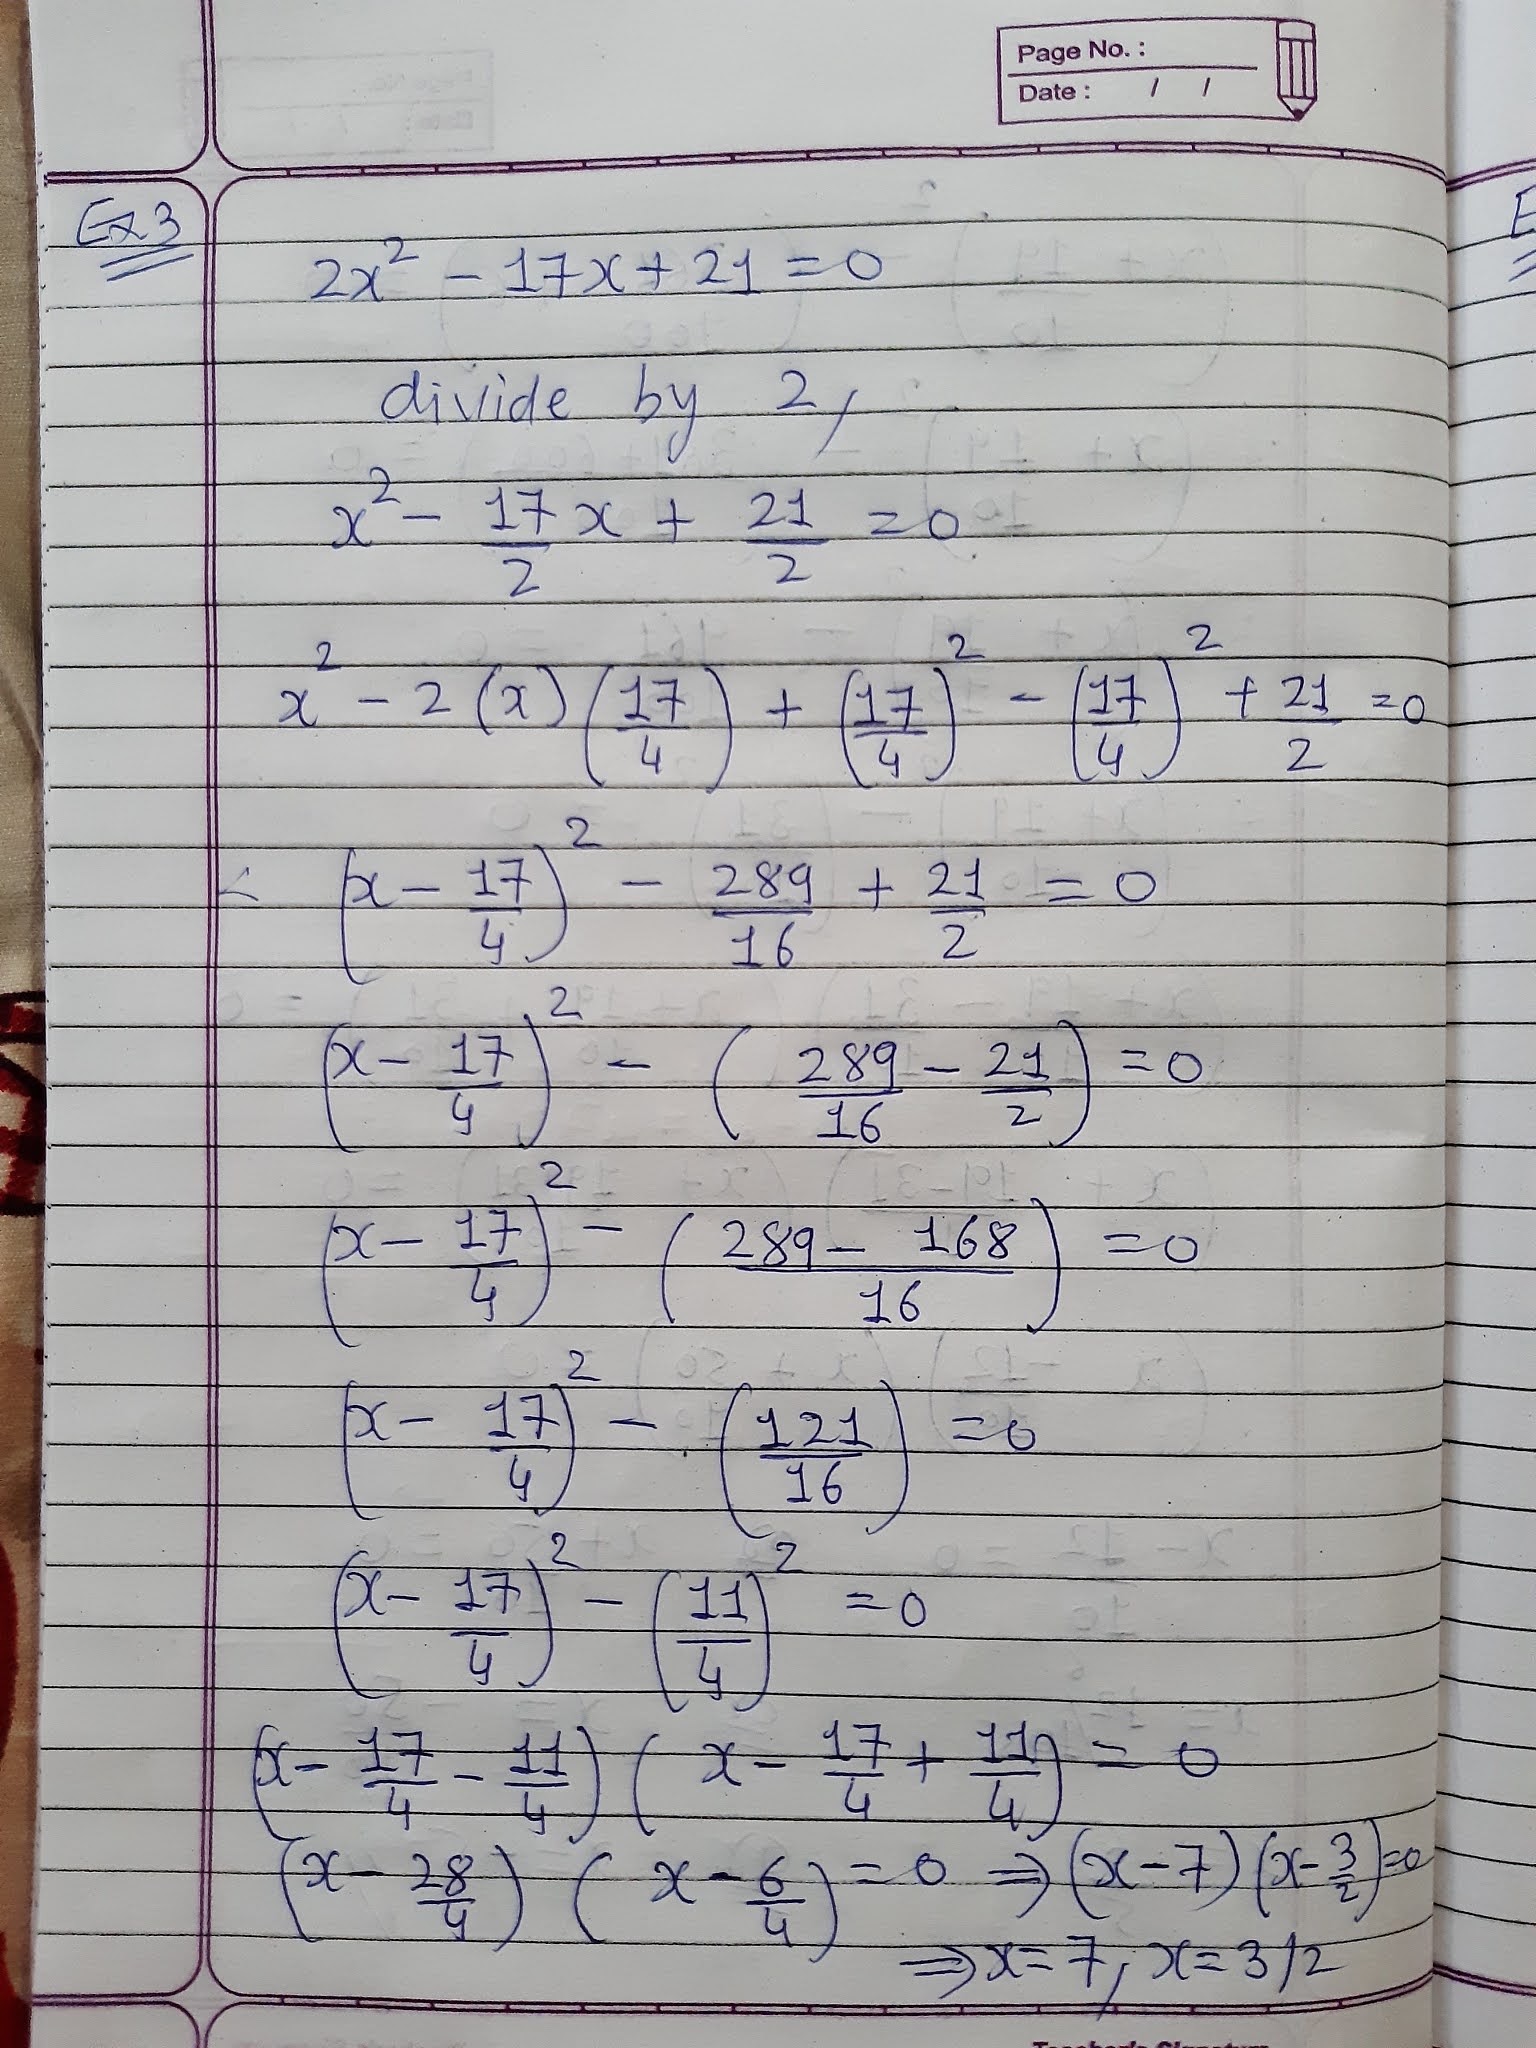 Page No. :
Date : / /
Ex 3
2x² - 17x + 21 = 0
divide by 2,
x² - 17/2 x + 21/2 = 0
x² - 2 (x) (17/4) + (17/4)² - (17/4)² + 21/2 = 0
(x - 17/4)² - 289/16 + 21/2 = 0
(x - 17/4)² - (289/16 - 21/2) = 0
(x - 17/4)² - ((289 - 168)/16) = 0
(x - 17/4)² - (121/16) = 0
(x - 17/4)² - (11/4)² = 0
(x - 17/4 - 11/4) (x - 17/4 + 11/4) = 0
(x - 28/4) (x - 6/4) = 0 ⇒ (x - 7) (x - 3/2) = 0
⇒ x = 7, x = 3/2